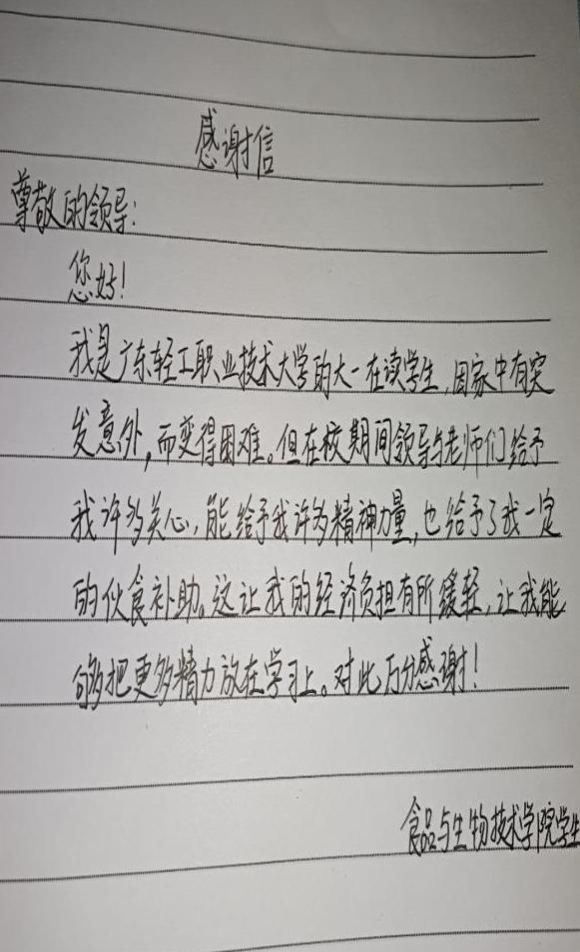 感谢信
尊敬的领导:
您好!
我是广东轻工职业技术大学的大一在读学生,因家中有突
发意外,而变得困难。但在校期间领导与老师们给予
我许多关心,能给予我许多精神力量,也给予了我一定
的伙食补助。这让我的经济负担有所缓轻,让我能
够把更多精力放在学习上。对此万分感谢!
食品与生物技术学院学生